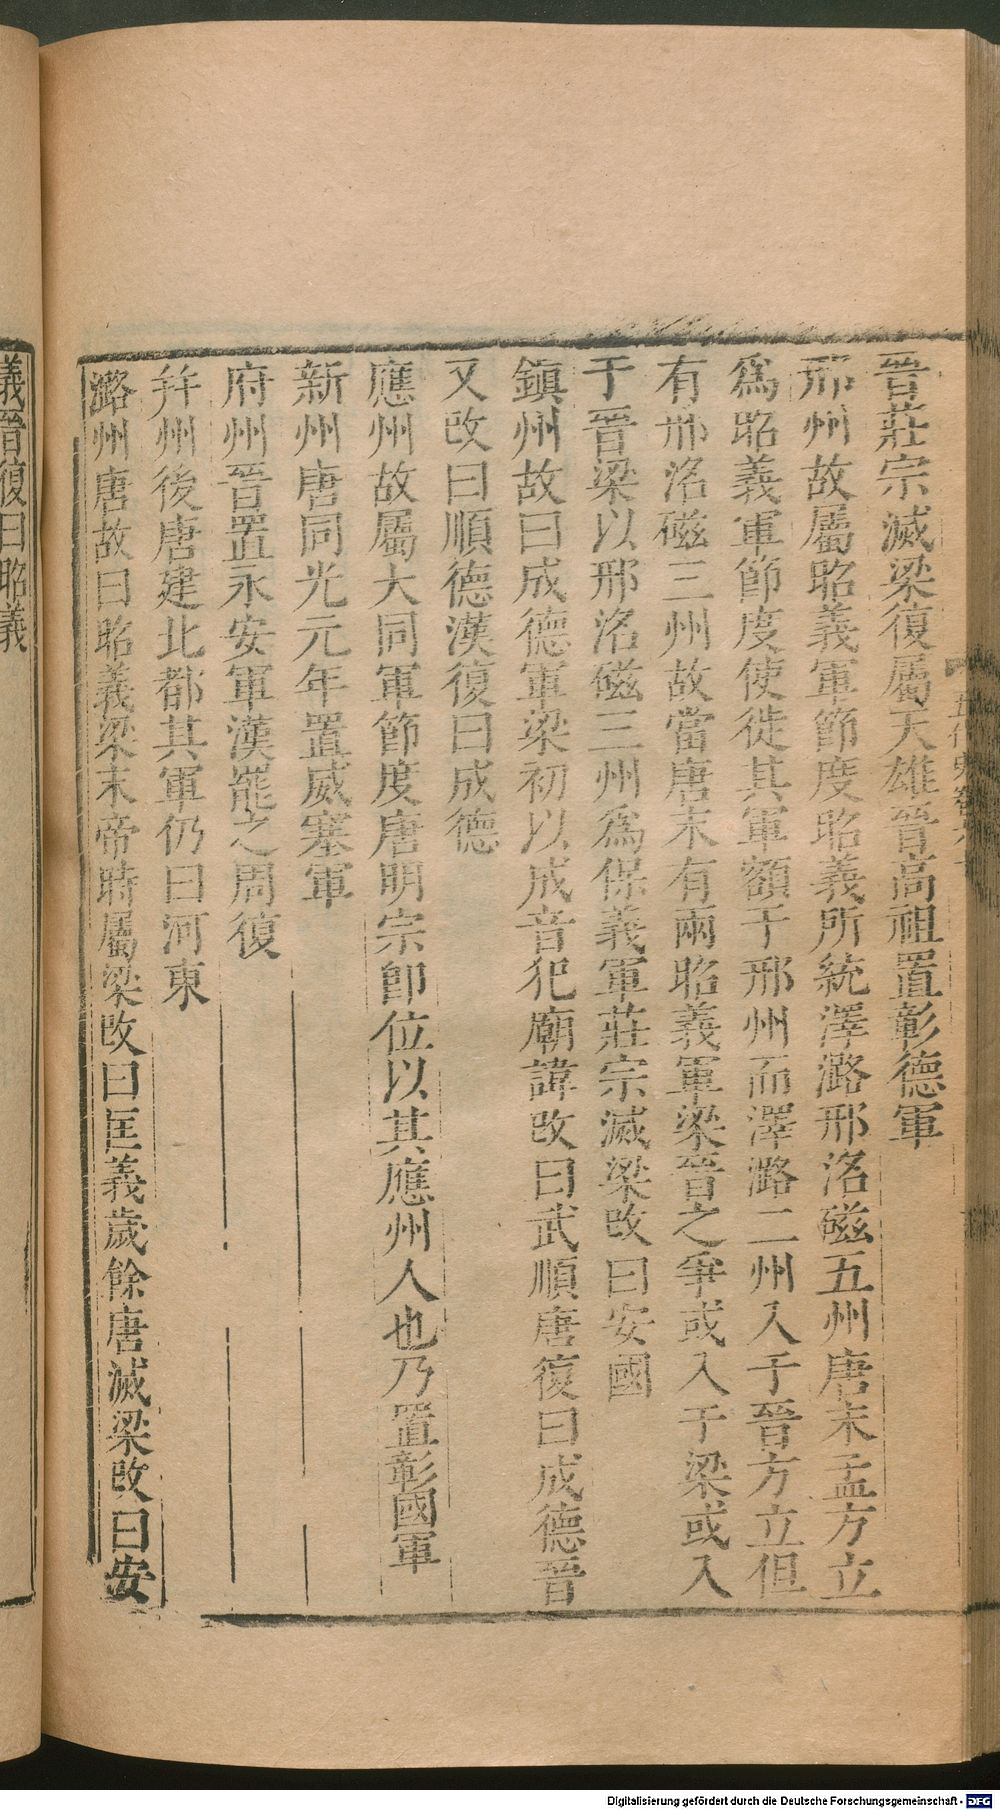 晉莊宗滅梁復屬天雄晉高祖置彰德軍
邢州故屬昭義軍節度昭義所統澤潞邢洺磁五州唐末孟方立
爲昭義軍節度使徙其軍額于邢州而澤潞二州入于晉方立但
有邢洺磁三州故當唐末有兩昭義軍梁晉之爭或入于梁或入
于晉梁以邢洺磁三州爲保義軍莊宗滅梁改曰安國
鎮州故曰成德軍梁初以成音犯廟諱改曰武順唐復曰成德晉
又改曰順德漢復曰成德
應州故屬大同軍節度唐明宗卽位以其應州人也乃置彰國軍
新州唐同光元年置威塞軍
府州晉置永安軍漢罷之周復
幷州後唐建北都其軍仍曰河東
潞州唐故曰昭義梁末帝時屬梁改曰匡義歲餘唐滅梁改曰安
義晉復曰昭義
Digitalisierung gefördert durch die Deutsche Forschungsgemeinschaft - DFG